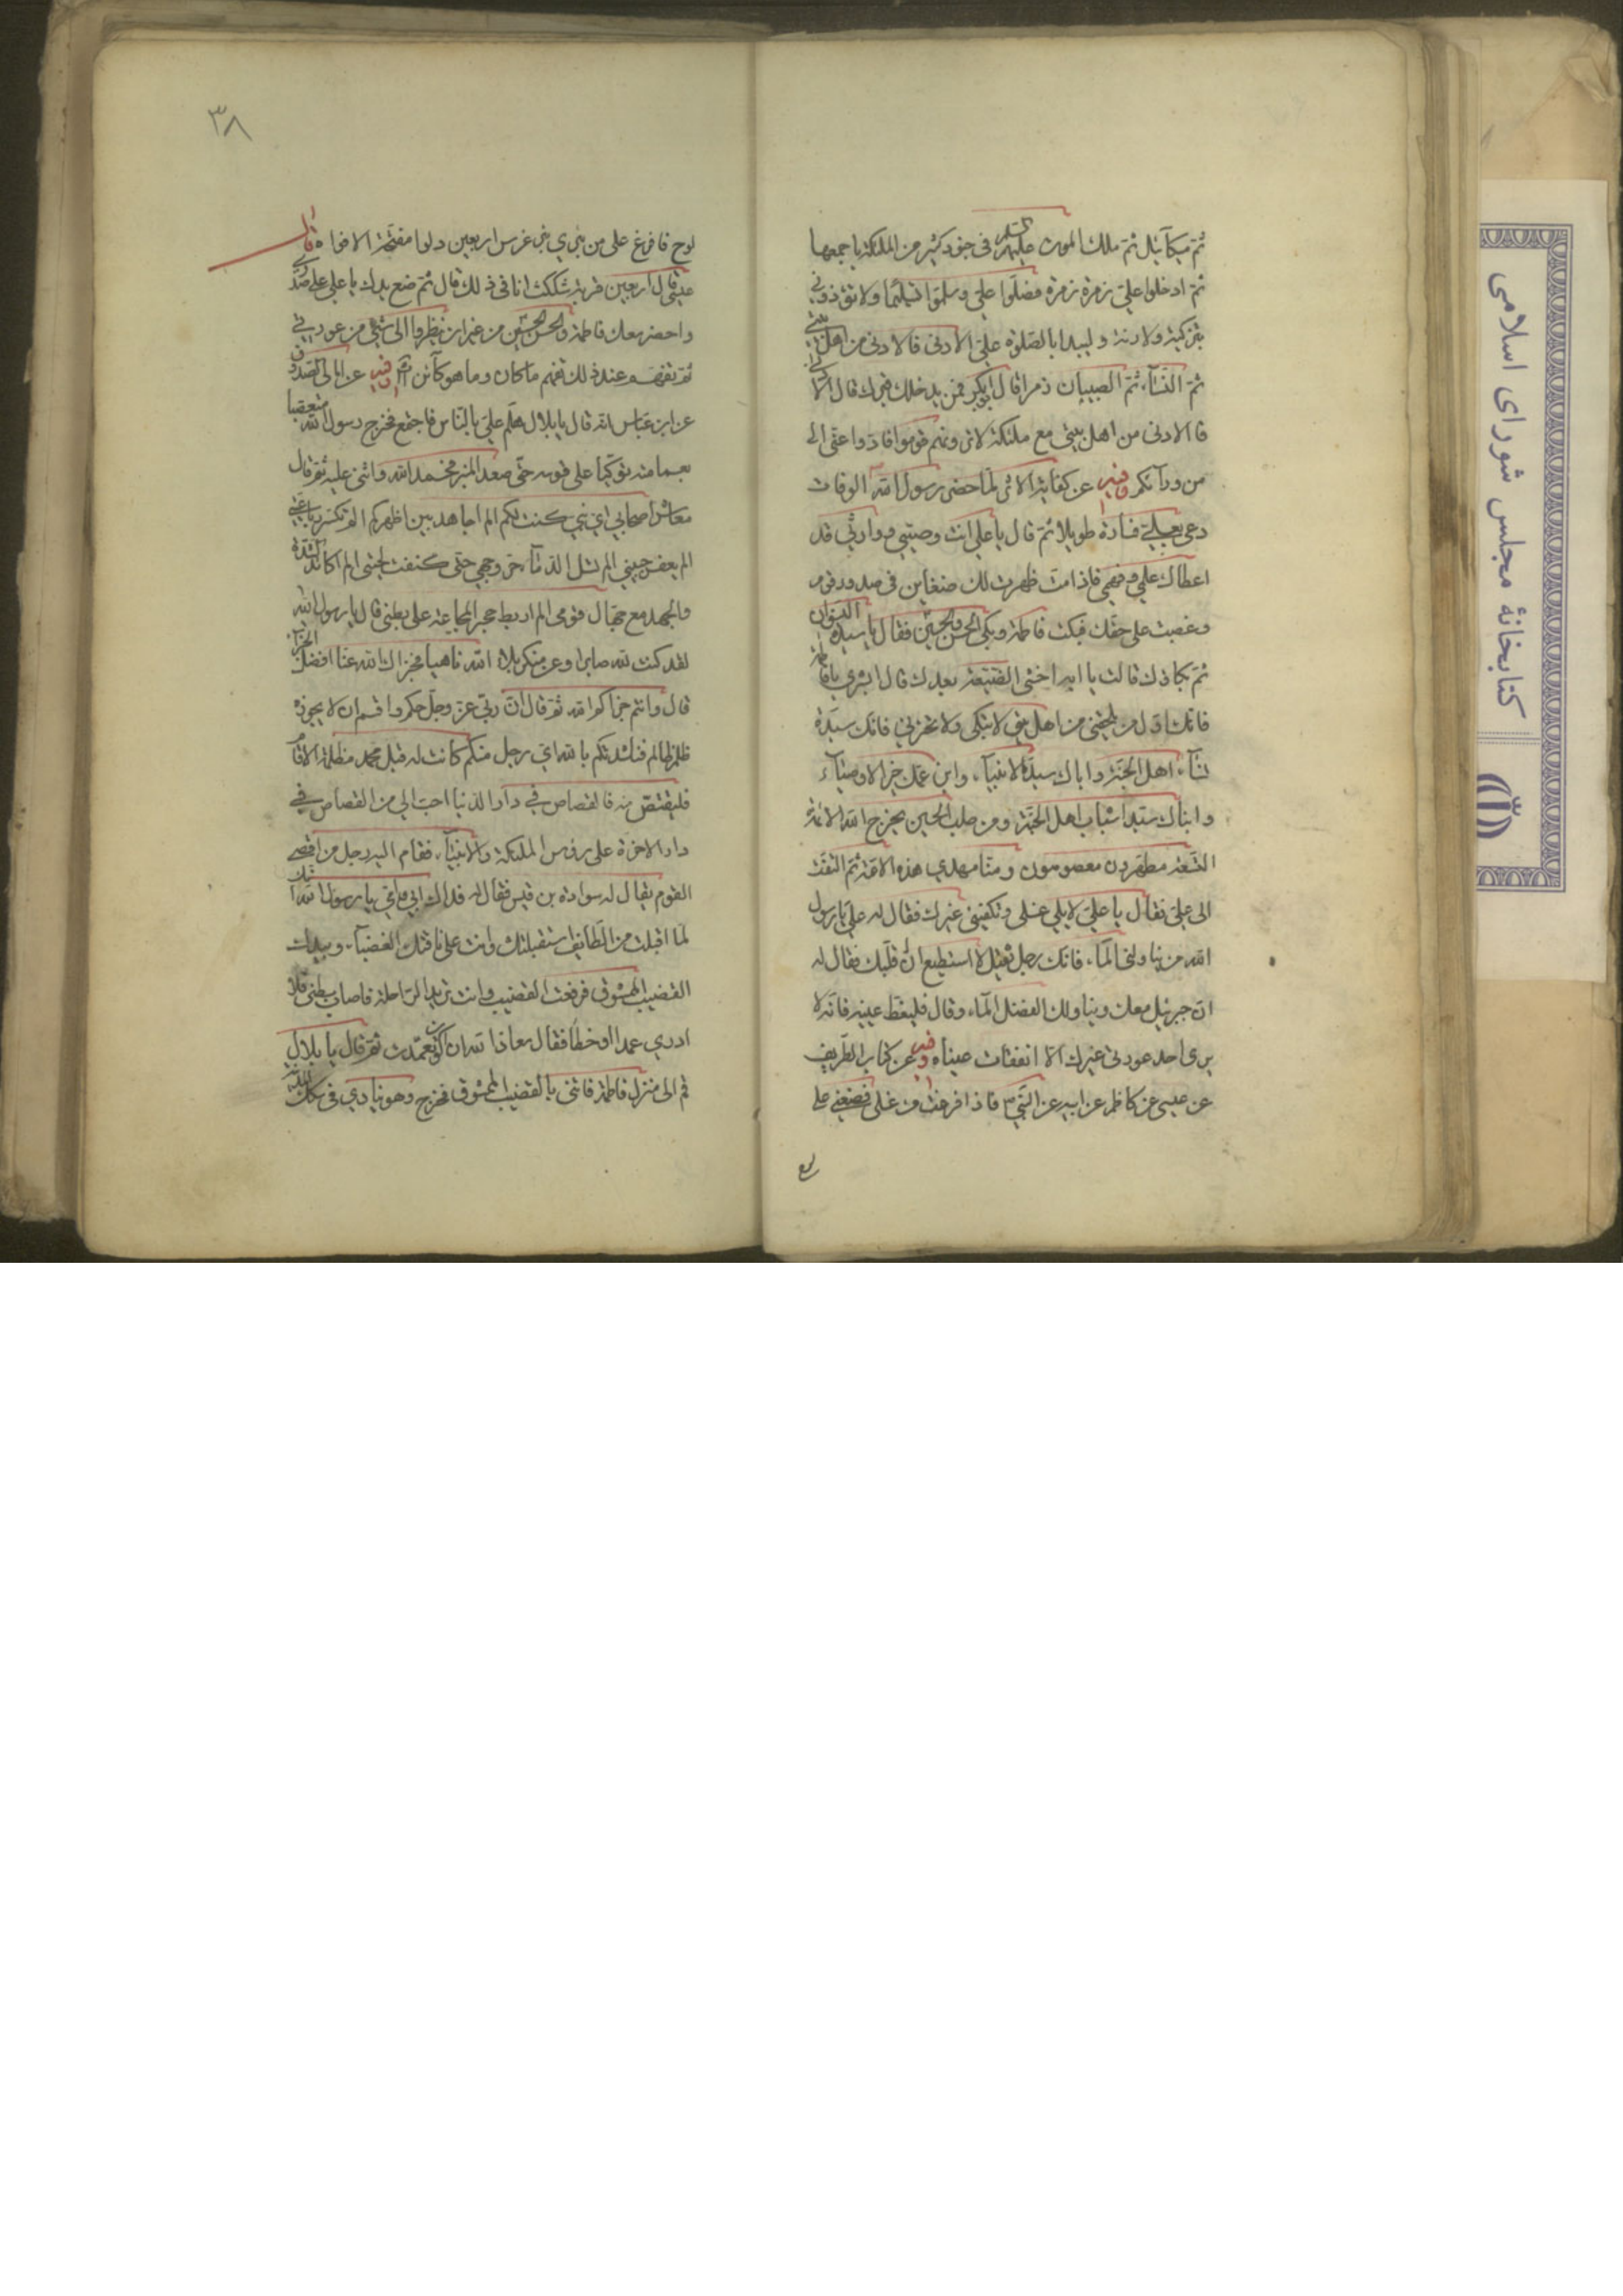 ثم ميكآئيل ثم ملك الموت عليهم السلم فى جنود كثير من الملئكة باجمعها
ثم ادخلوا علىّ زمرة زمرة فصلّوا علىّ وسلّموا تسليما ولا تؤذونى
بتزكية ولا رنة وليبدا بالصلوة علىّ الادنى فالادنى من اهل بيتى
ثم النسآء ثم الصبيان زمرا قال ابوبكر فمن يدخلك قبرك قال الادنى
فالادنى من اهل بيتى مع ملئكة لا ترونهم قوموا فادّوا عنّى الى
من ورآئكم وفيه عن كفاية الاثر لمّا حضر رسول الله الوفات
دعى بعلىّ فسارّه طويلا ثم قال يا على انت وصيّى ووارثى قد
اعطاك علمى وفهمى فاذا متّ ظهرت لك ضغاين فى صدور قوم
وغصبت على حقّك فبكت فاطمة وبكى الحسن والحسين فقال يا سيدة النسوان
ثم بكاؤك قالت يا ابه اخشى الضيعة بعدك قال ابشرى يا فاطمة
فانك اوّل من يلحقنى من اهل بيتى لا تبكى ولا تحزنى فانك سيّدة
نسآء اهل الجنّة واباك سيّد الانبيآء وابن عمّك خير الاوصيآء
وابناك سيّدا شباب اهل الجنّة ومن صلب الحسين يخرج الله الائمة
التسعة مطهّرون معصومون ومنّا مهدي هذه الامّة ثم التفت
الى علىّ فقال يا علىّ لا يلى غسلى وتكفينى غيرك فقال له علىّ يا رسول
الله من يناولنى المآء فانك رجل ثقيل لا استطيع ان اقلبك فقال له
ان جبرئيل معك ويناولك الفضل المآء وقال فليغطّ عينيه فانه لا
يرى احد عورتى غيرك الا انفقات عيناه وفيه عن كتاب الطريف
عن عيسى عن كاظم عن ابيه عن النبى ص فاذا فرغت من غسلى فضعنى على
لوح
٣٨
لوح فافرغ على من بئرى بئر غرس اربعين دلوا مفتّحة الافواه قال
عيسى قال اربعين قربة شككت انا فى ذلك قال ثم ضع يدك يا على على صدرى
واحضر معك فاطمة والحسن والحسين من غير ان ينظروا الى شئ من عورتى
ثم تفهّم عند ذلك تفهم ما كان وما هو كآئن وفيه عن امالى الصدوق
عن ابن عبّاس انه قال يا بلال هلمّ علىّ بالناس فاجتمع فخرج رسول الله متعصّبا
بعمامته متوكّيا على قوسه حتّى صعد المنبر فحمد الله واثنى عليه ثم قال
معاشر اصحابى اىّ نبى كنت لكم الم اجاهد بين اظهركم الم تكسر رباعيتى
الم يعفر جبينى الم تسل الدمآء على حرّ وجهى حتى كنفت لحيتى الم اكابد الشدّة
والجهد مع جهّال قومى الم اربط حجر المجاعة على بطنى قال يا رسول الله
لقد كنت لله صابرا وعن منكر بلآء الله ناهيا فجزاك الله عنّا افضل الجزآء
قال وانتم جزاكم الله ثم قال ان ربّى عزّ وجلّ حكم واقسم ان لا يجوزه
ظلم ظالم فناشدتكم بالله اىّ رجل منكم كانت له قبل محمد مظلمة الا قام
فليقتصّ منه فالقصاص فى دار الدنيا احبّ الى من القصاص فى
دار الاخرة على رؤس الملئكة والانبيآء فقام اليه رجل من اقصى
القوم يقال له سوادة بن قيس فقال له فداك ابى وامّى يا رسول الله انك
لما اقبلت من الطآئف استقبلتك وانت على ناقتك الغضبآء وبيدك
القضيب الممشوق فرفعت القضيب وانت تريد الراحلة فاصاب بطنى فلا
ادرى عمدا او خطأ فقال معاذ الله ان اكون تعمّدت ثم قال يا بلال
قم الى منزل فاطمة فائتنى بالقضيب الممشوق فخرج وهو ينادى فى سكك المدينة
كتابخانهٔ مجلس شورای اسلامی